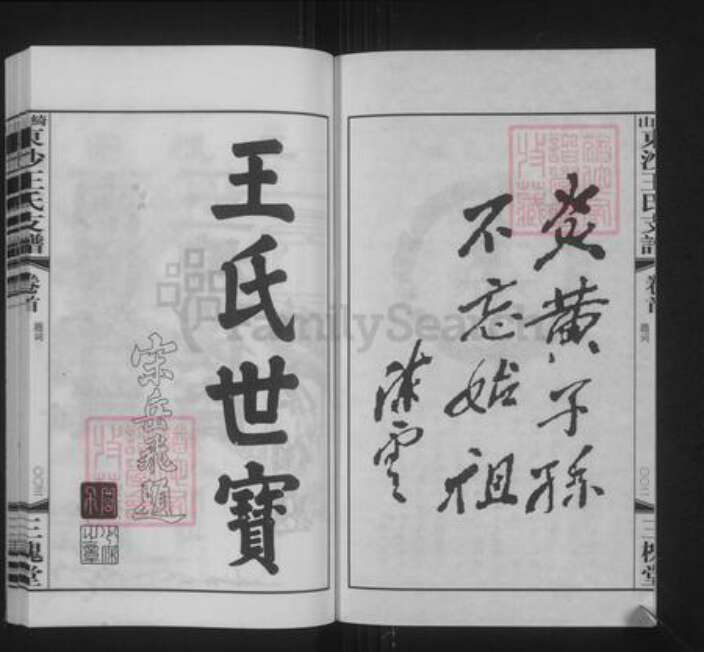 炎黄子孫
不忘始祖
陈雲
王氏世寶
宋岳飛題
東沙王氏支譜
卷首
題词
〇〇二
三槐堂
東沙王氏支譜
卷首
題词
三槐堂
FamilySearch